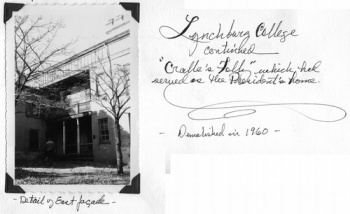 Lynchburg College
continued
"Cralle's Folly" which had
served as the President's home.
- Demolished in 1960 -
- Detail of East façade -